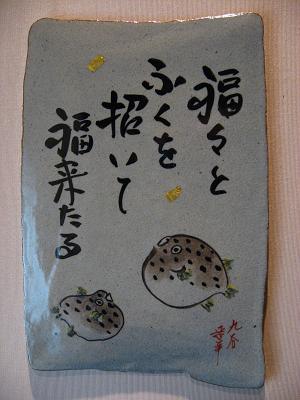 福々と
ふくを
招いて
福来たる